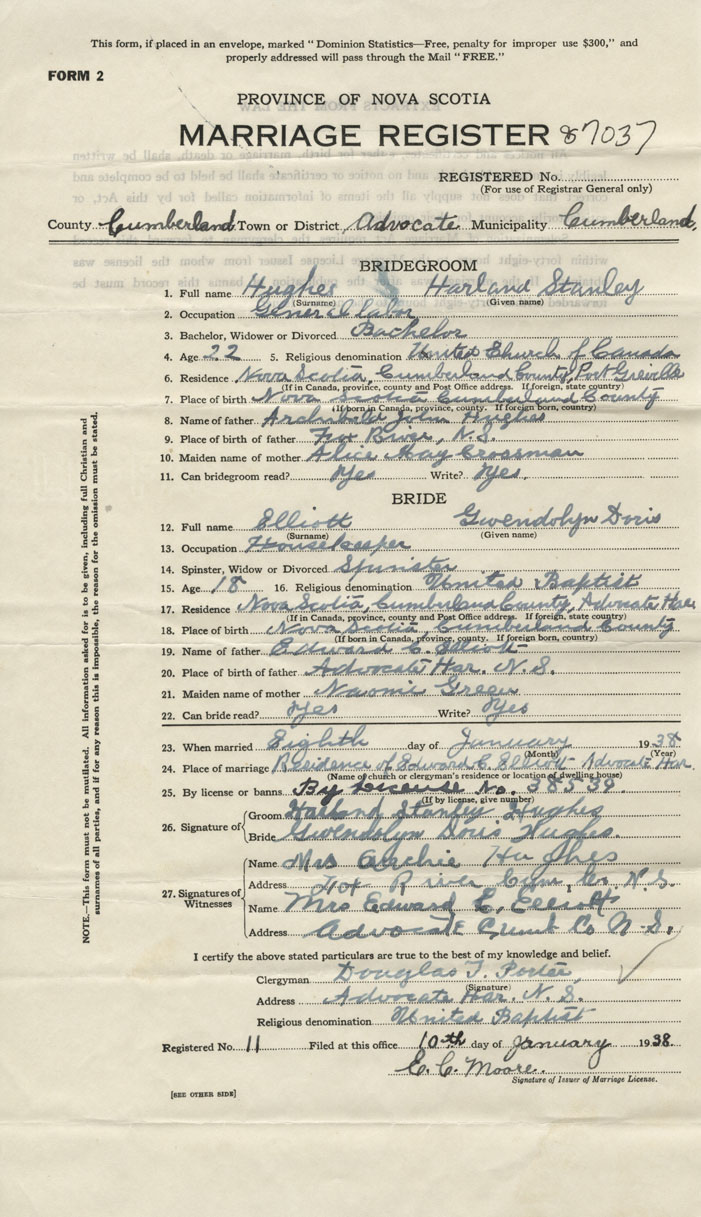 This form, if placed in an envelope, marked "Dominion Statistics—Free, penalty for improper use $300," and
properly addressed will pass through the Mail "FREE."
FORM 2
PROVINCE OF NOVA SCOTIA
MARRIAGE REGISTER 87037
REGISTERED No.
(For use of Registrar General only)
County Cumberland Town or District Advocate Municipality Cumberland
BRIDEGROOM
1. Full name Hughes Harland Stanley
(Surname) (Given name)
2. Occupation General labor
3. Bachelor, Widower or Divorced Bachelor
4. Age 22 5. Religious denomination United Church of Canada
6. Residence Nova Scotia, Cumberland County, Port Greville
(If in Canada, province, county and Post Office address. If foreign, state country)
7. Place of birth Nova Scotia Cumberland County
(If born in Canada, province, county. If foreign born, country)
8. Name of father Archibald John Hughes
9. Place of birth of father Fox River, N.S.
10. Maiden name of mother Alice May Crossman
11. Can bridegroom read? Yes Write? Yes.
BRIDE
12. Full name Elliott Gwendolyn Doris
(Surname) (Given name)
13. Occupation Housekeeper
14. Spinster, Widow or Divorced Spinster
15. Age 18 16. Religious denomination United Baptist
17. Residence Nova Scotia, Cumberland County, Advocate Har.
(If in Canada, province, county and Post Office address. If foreign, state country)
18. Place of birth Nova Scotia, Cumberland County
(If born in Canada, province, county. If foreign born, country)
19. Name of father Edward C. Elliott
20. Place of birth of father Advocate Har. N.S.
21. Maiden name of mother Naomi Green
22. Can bride read? Yes Write? Yes
23. When married Eighth day of January 1938
(Month) (Year)
24. Place of marriage Residence of Edward C. Elliott Advocate Har.
(Name of church or clergyman's residence or location of dwelling house)
25. By license or banns By License No. 38539
(If by license, give number)
26. Signature of
Groom Harland Stanley Hughes
Bride Gwendolyn Doris Hughes.
27. Signatures of
Witnesses
Name Mrs Archie Hughes
Address Fox River Cum. Co. N.S.
Name Mrs Edward C. Elliott
Address Advocate Cumb Co N.S.
I certify the above stated particulars are true to the best of my knowledge and belief.
Clergyman Douglas T. Porter
(Signature)
Address Advocate Har. N.S.
Religious denomination United Baptist
Registered No. 11 Filed at this office 10th day of January 1938.
E. C. Moore.
Signature of Issuer of Marriage License.
[SEE OTHER SIDE]
NOTE.—This form must not be mutilated. All information asked for is to be given, including full Christian and
surnames of all parties, and if for any reason this is impossible, the reason for the omission must be stated.